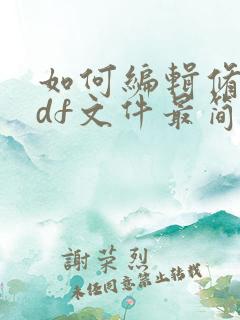 如何編輯修
df文件最简
謝荣烈
未任同意禁止转载